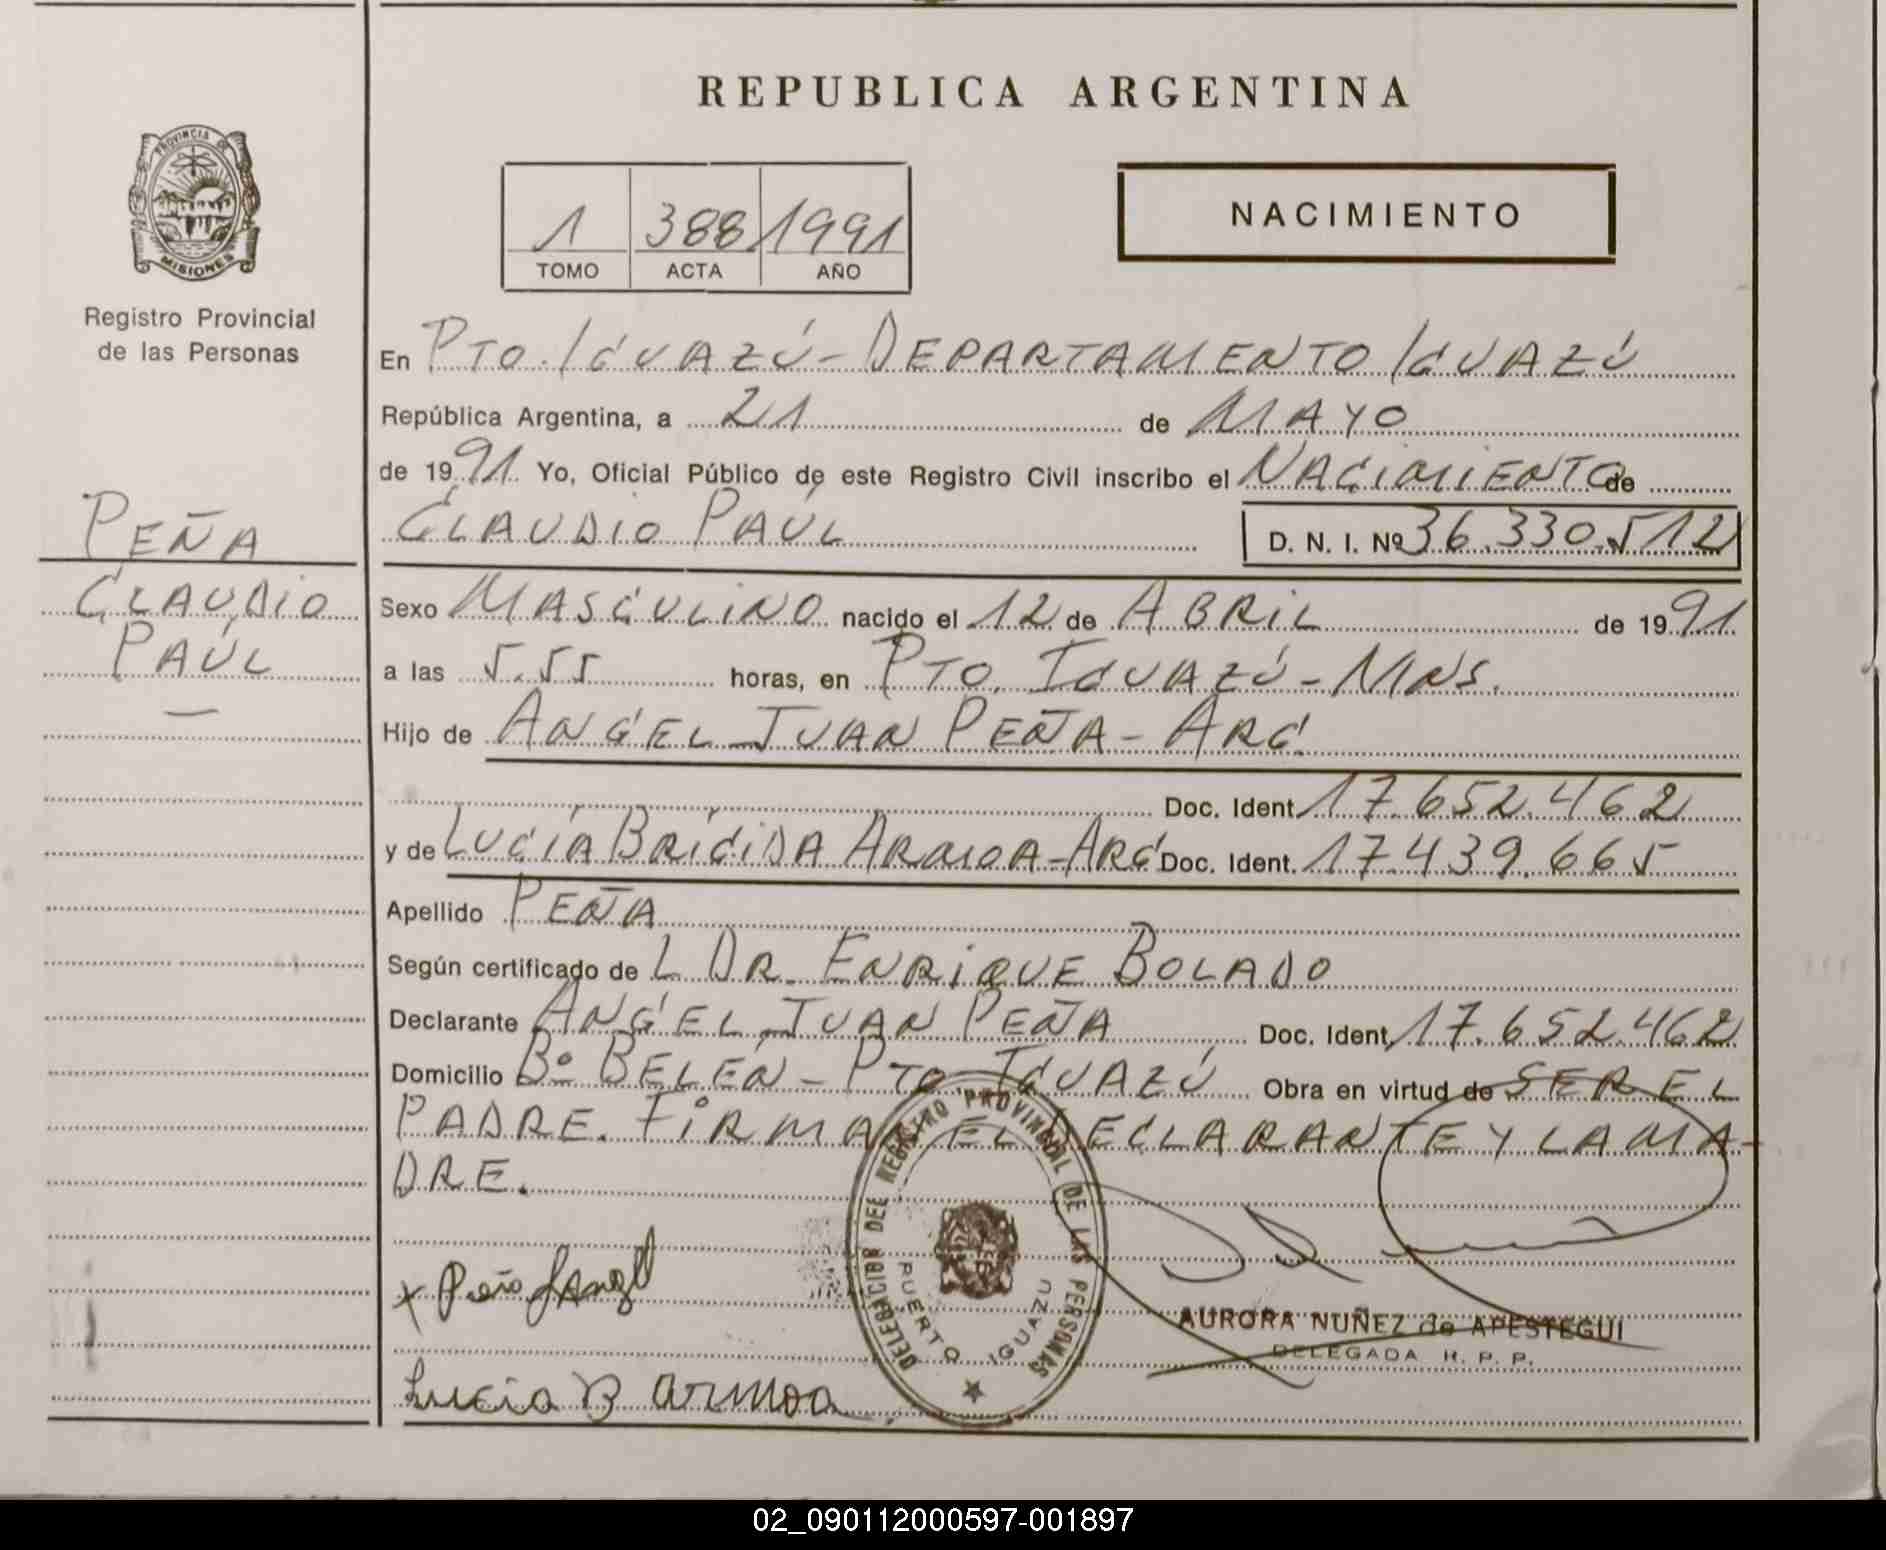 REPUBLICA ARGENTINA
PROVINCIA DE
MISIONES
Registro Provincial
de las Personas
1 388 1991
TOMO ACTA AÑO
NACIMIENTO
En PTO. IGUAZÚ - DEPARTAMENTO IGUAZÚ
República Argentina, a 21 de MAYO
de 1991 Yo, Oficial Público de este Registro Civil inscribo el NACIMIENTO de
CLAUDIO PAÚL D. N. I. Nº 36.330.512
PEÑA
CLAUDIO
PAÚL
Sexo MASCULINO nacido el 12 de ABRIL de 1991
a las 5.55 horas, en PTO. IGUAZÚ - MNS.
Hijo de ANGEL JUAN PEÑA - ARG.
Doc. Ident. 17.652.462
y de LUCÍA BRÍGIDA ARMOA - ARG Doc. Ident. 17.439.665
Apellido PEÑA
Según certificado de L DR. ENRIQUE BOLADO
Declarante ANGEL JUAN PEÑA Doc. Ident. 17.652.462
Domicilio Bº BELÉN - PTO. IGUAZÚ Obra en virtud de SER EL
PADRE. FIRMA EL DECLARANTE Y LA MA-
DRE.
DELEGACION DEL REGISTRO PROVINCIAL DE LAS PERSONAS
PUERTO IGUAZU
x Peña J Angel
AURORA NUÑEZ de APESTEGUI
DELEGADA R. P. P.
Lucia B armoa
02_090112000597-001897